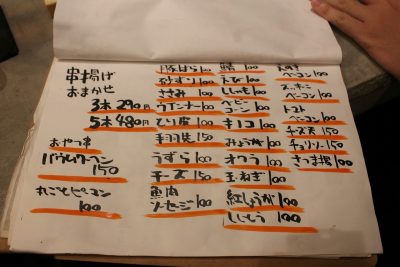 串揚げ
おまかせ
3本 290円
5本 480円
おやつ串
バウムクーヘン
150
丸ごとピーマン
100
豚ばら 100
砂ずり 100
ささみ 100
ウインナー 100
とり皮 100
手羽先 150
うずら 100
チーズ 150
魚肉
ソーセージ 100
100
えび 100
ししゃも 100
ベビー
コーン 100
キノコ 100
みょうが 100
オクラ 100
玉ねぎ 100
紅しょうが 100
ししとう 100
えのき
ベーコン 100
ズッキーニ
ベーコン 100
トマト
ベーコン 100
チーズ 150
チョリソー 150
きつね揚 100